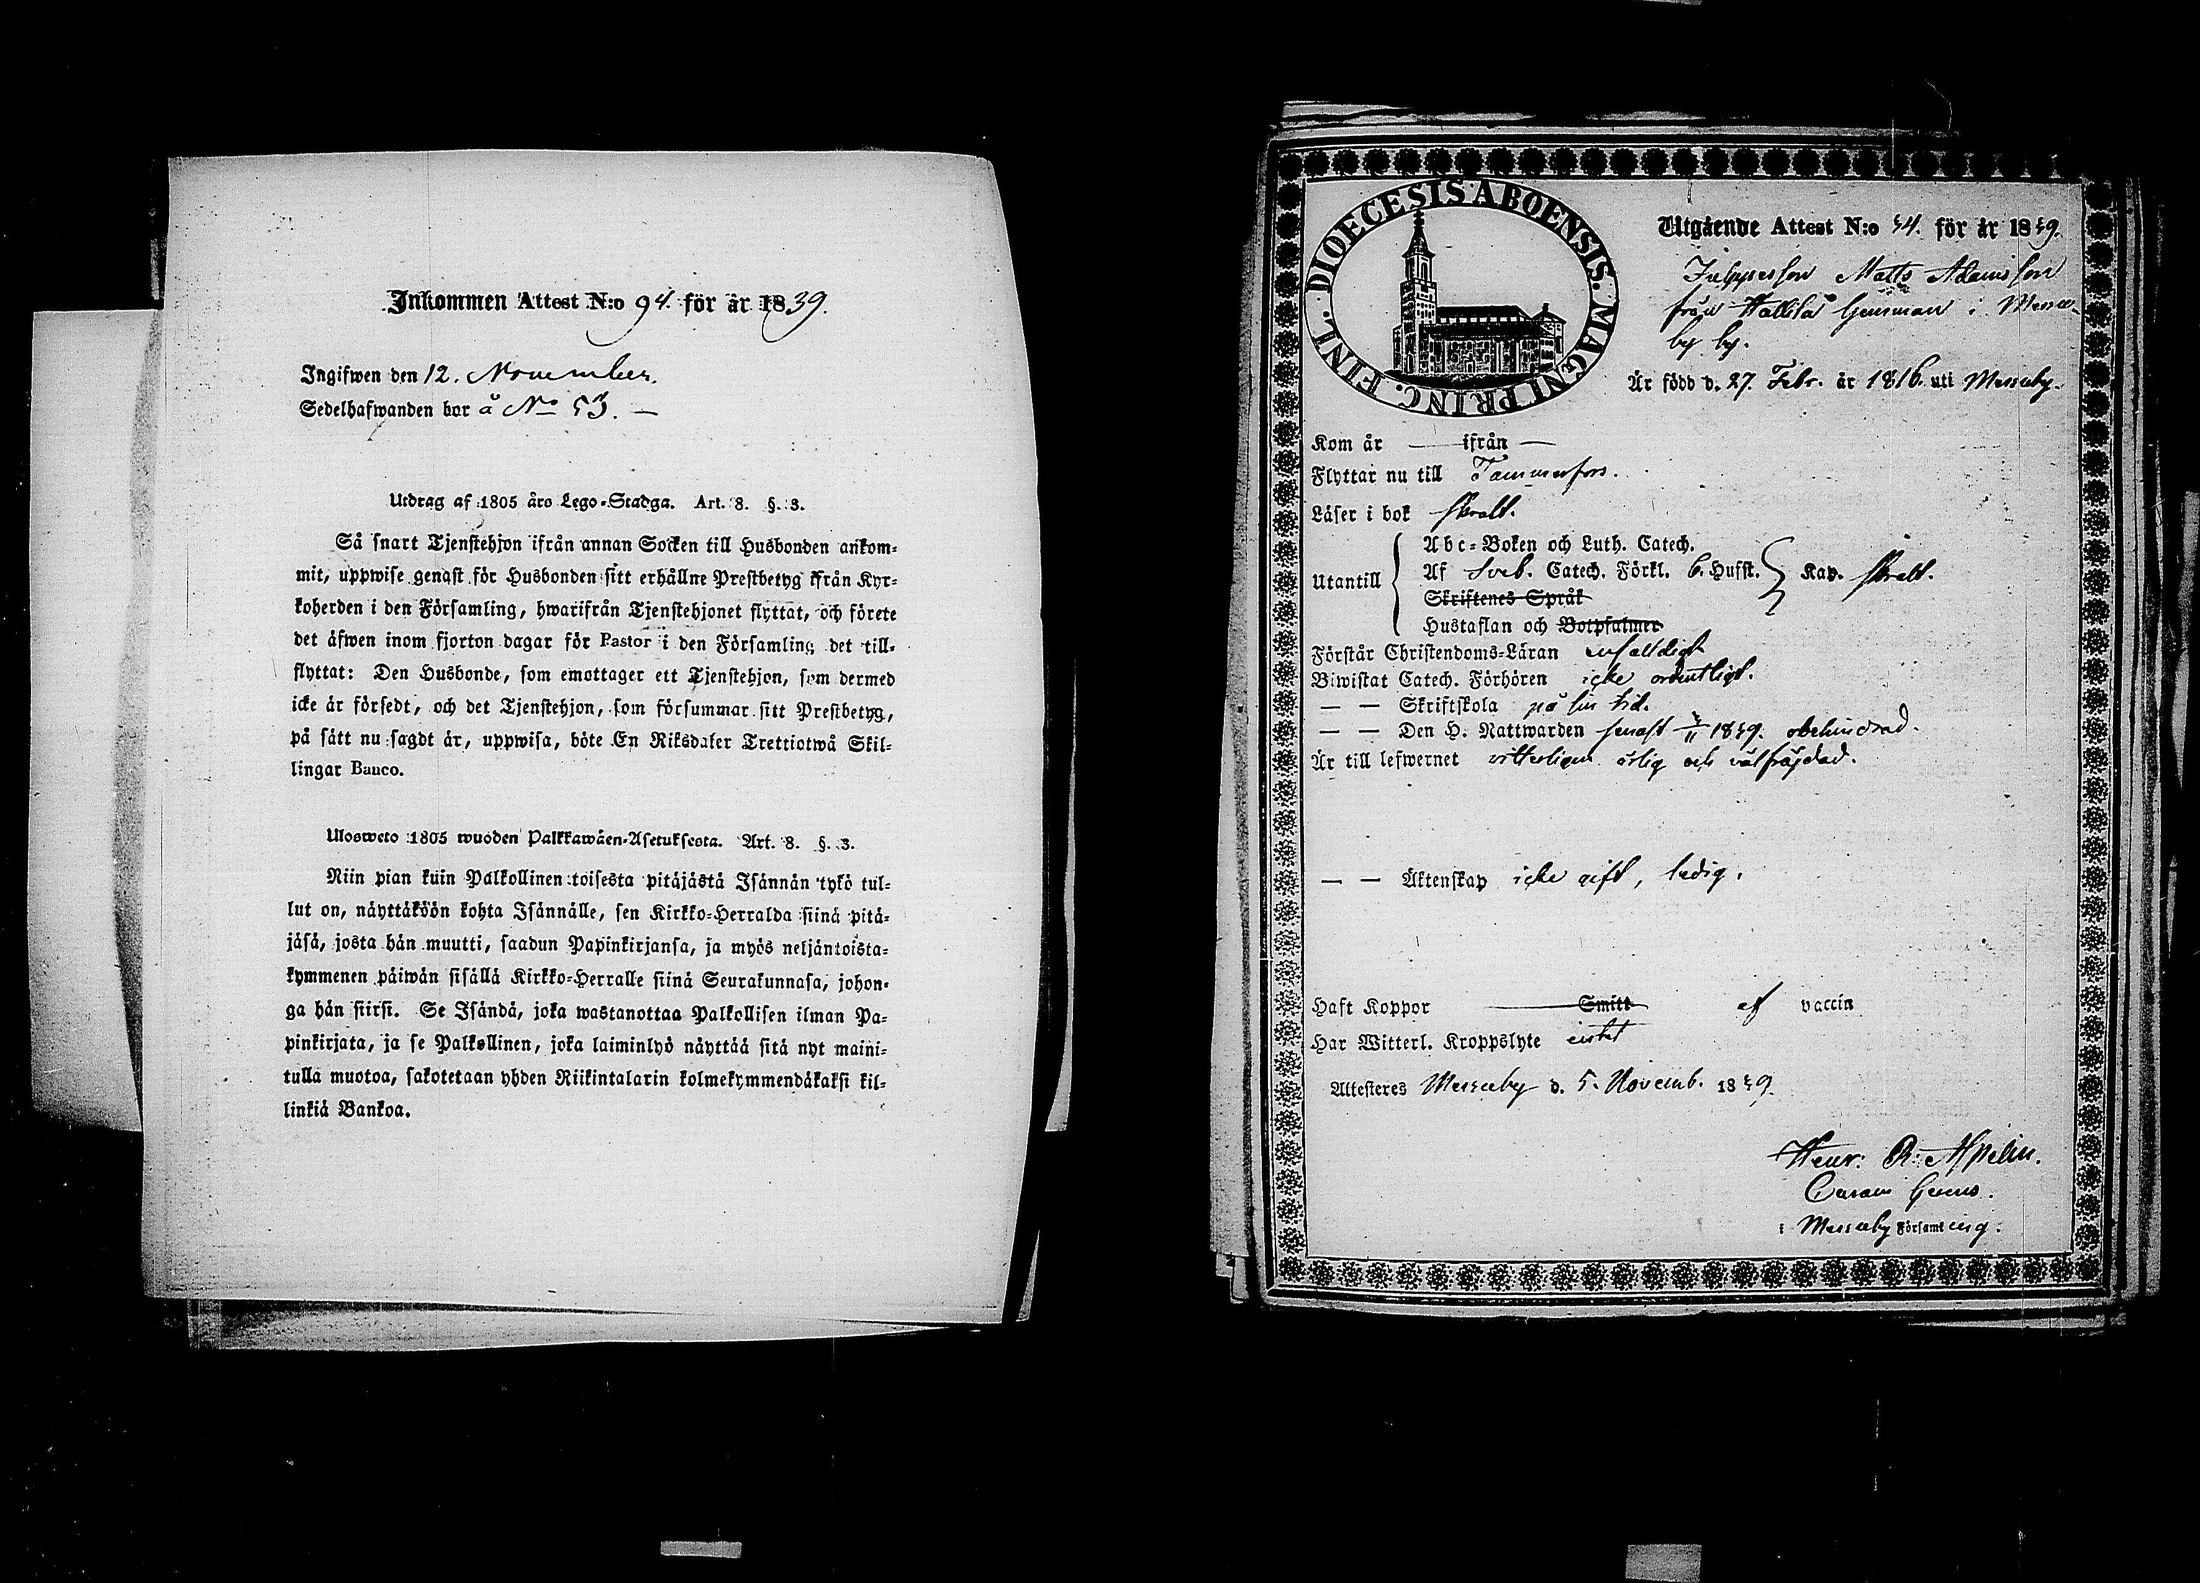 Inkommen Attest N:o 94. för år 1839.
Ingifwen den 12. November.
Sedelhafwanden bor å No 53. —
Utdrag af 1805 års Lego-Stadga. Art. 8. §. 3.
Så snart Tjenstehjon ifrån annan Socken till Husbonden ankom-
mit, uppwise genast för Husbonden sitt erhållne Prestbetyg ifrån Kyr-
koherden i den Församling, hwarifrån Tjenstehjonet flyttat, och förete
det äfwen inom fjorton dagar för Pastor i den Församling det till-
flyttat: Den Husbonde, som emottager ett Tjenstehjon, som dermed
icke är försedt, och det Tjenstehjon, som försummar sitt Prestbetyg,
på sätt nu sagdt är, uppwisa, böte En Riksdaler Trettiotwå Skil-
lingar Banco.
Ulosweto 1805 wuoden Palkkawäen-Asetuksesta. Art. 8. §. 3.
Niin pian kuin Palkollinen toisesta pitäjästä Isännän tykö tul-
lut on, näyttäköön kohta Isännälle, sen Kirkko-Herralda siinä pitä-
jäsä, josta hän muutti, saadun Papinkirjansa, ja myös neljäntoista-
kymmenen päiwän sisällä Kirkko-Herralle siinä Seurakunnasa, johon-
ga hän siirsi. Se Isändä, joka wastanottaa Palkollisen ilman Pa-
pinkirjata, ja se Palkollinen, joka laiminlyö näyttää sitä nyt maini-
tulla muotoa, sakotetaan yhden Riikintalarin kolmekymmendäkaksi kil-
linkiä Bankoa.
DIOECESIS ABOENSIS. MAGNI PRINC. FINL.
Utgående Attest N:o 54. för år 1839.
Matts Adamsson
från Hallila i Messu-
by by.
Är född d. 27. Febr. år 1816. uti Messuby.
Kom år — ifrån —
Flyttar nu till Tammerfors.
Läser i bok swalt.
Abc-Boken och Luth. Catech.
Utantill Af Sveb. Catech. Förkl. 6. Hufst. Kap. swalt.
Skriftenes Språk
Hustaflan och Botpsalmer
Förstår Christendoms-Läran enfaldigt
Biwistat Catech. Förhören icke ordentligt.
— — Skriftskola på sin tid.
— — Den H. Nattwarden senast 3/11 1839. obehindrad.
Är till lefwernet witterligen ärlig och välfräjdad.
— — Äktenskap icke gift, ledig.
Haft Koppor Smitt af vaccin
Har Witterl. Kroppslyte intet
Attesteres Messuby d. 5. Novemb. 1839.
Henr: R: Aspelin.
i Messuby Församling.